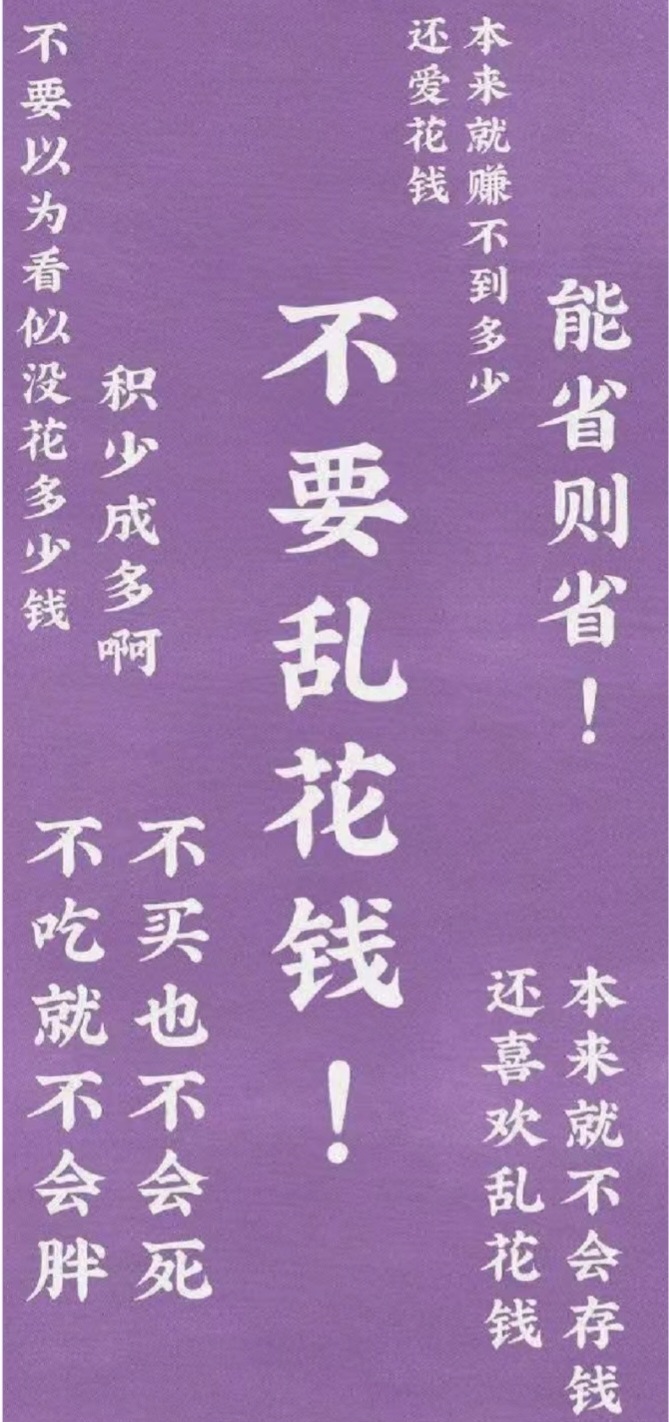 本来就赚不到多少
还爱花钱
能省则省！
不要乱花钱！
不要以为看似没花多少钱
积少成多啊
不买也不会死
不吃就不会胖
本来就不会存钱
还喜欢乱花钱